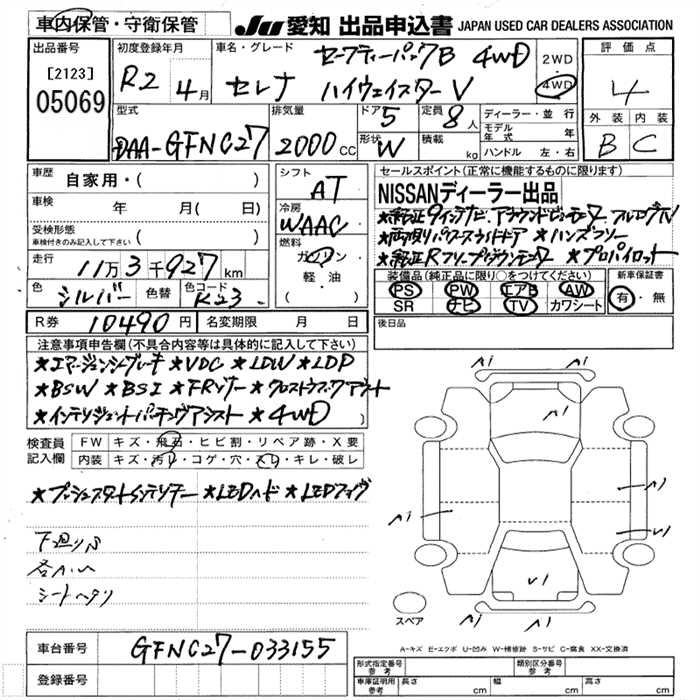 車内保管・守衛保管
JU 愛知 出品申込書 JAPAN USED CAR DEALERS ASSOCIATION
出品番号 [2123] 05069
初度登録年月 R2 4月
車名・グレード セーフティーパックB 4WD
セレナ ハイウェイスターV
2WD
4WD
評価点 4
外装 内装
B C
型式 DAA-GFNC27
排気量 2000cc
ドア 5
形状 W
定員 8人
積載 kg
ディーラー・並行
モデル年式 年
ハンドル 左・右
車歴 自家用・( )
車検 年 月(日)
受検形態 車検付きのみ記入して下さい ( )
走行 11万3千927km
色 シルバー 色替 色コード K23
R券 10490円 名変期限 月 日
シフト AT
冷房 WAAC
燃料 ガソリン
軽・油
( )
セールスポイント(正常に機能するものに限ります)
NISSANディーラー出品
★純正9インチナビ、アラウンドビューモニター、フルセグTV
★両側パワースライドドア ★ハンズフリー
★純正Rフリップダウンモニター ★プロパイロット
装備品(純正品に限り○をつけてください)
PS PW エアB AW
SR ナビ TV カワシート
新車保証書
有・無
後日品
注意事項申告欄(不具合内容等は具体的に記入して下さい)
★エマージェンシーブレーキ ★VDC ★LDW ★LDP
★BSW ★BSI ★FRソナー ★クロストラフィックアラート
★インテリジェントパーキングアシスト ★4WD
検査員記入欄
FW キズ・飛石・ヒビ割・リペア跡・X要
内装 キズ・汚れ・コゲ・穴・スレ・キレ・破レ
★プッシュスタートインテリキー ★LEDヘッド ★LEDフォグ
下廻りS
シートヘタリ
スペア
A-キズ E-エクボ U-凹み W-補修跡 S-サビ C-腐食 XX-交換済
車台番号 GFNC27-033155
登録番号
形式指定番号 参考
類別区分番号 参考
車庫証明用 参考 長さ cm 幅 cm 高さ cm